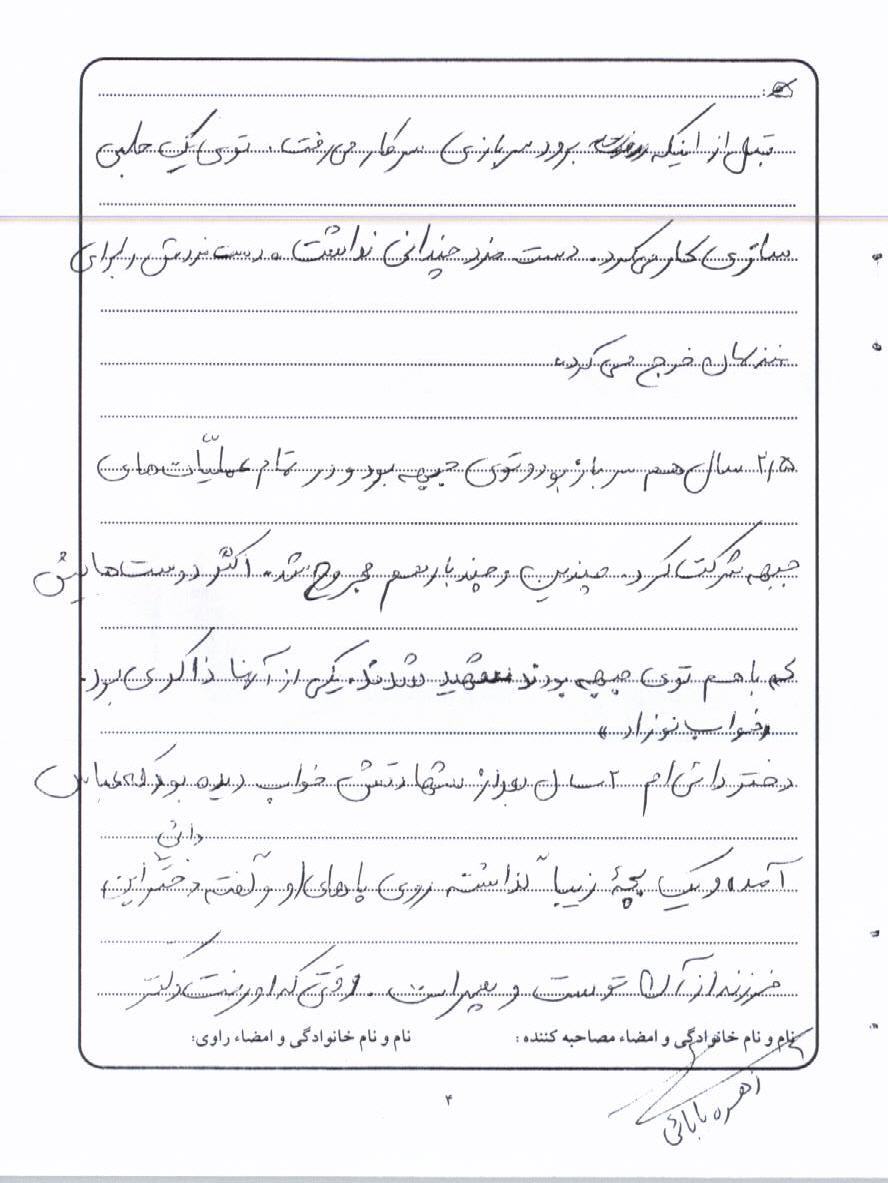 قبل از اینکه برود سربازی سر کار می‌رفت. توی یک حلبی
سازی کار می‌کرد. دست مزد چندانی نداشت. دست مزدش را برای
خرج می‌کرد.
۲/۵ سال هم سرباز بود و توی جبهه بود و در تمام عملیّات‌های
جبهه شرکت کرد. چندین و چند بار هم مجروح شد. اکثر دوست‌هایش
که با هم توی جبهه بودند شهید شدند. یکی از آنها ذاکری بود.
«خواب نوزاد»
دختر دائی‌ام ۲ سال بعد از شهادتش خواب دیده بود که عباس
آمده و یک بچهٔ زیبا گذاشته روی پاهای او و گفته دختر دائی این
فرزند از آن توست و پسر است. وقتی که او رفت دکتر
نام و نام خانوادگی و امضاء مصاحبه کننده :
نام و نام خانوادگی و امضاء راوی:
زهره بابائی
۴